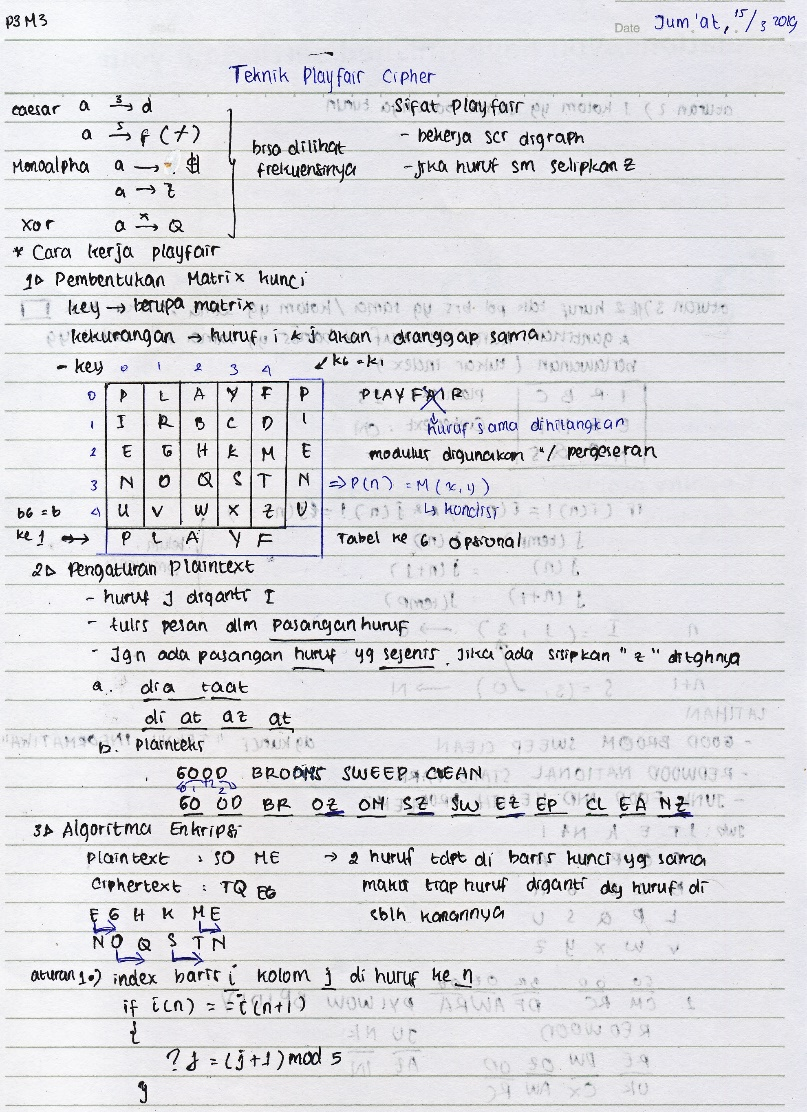 P3M3
Date Jum'at, 15/3 2019
Teknik Playfair Cipher
caesar a 3→ d
a 5→ f (+)
Monoalpha a →
a → Z
Xor a x→ Q
bisa dilihat
frekuensinya
Sifat Playfair
- bekerja scr digraph
- jika huruf sm selipkan Z
* Cara kerja playfair
1▷ Pembentukan Matrix kunci
key → berupa matrix
kekurangan → huruf i & j akan dianggap sama
- key 0 1 2 3 4 ↙ k6 = k1
0 P L A Y F P
1 I R B C D I
2 E G H K M E
3 N O Q S T N
4 U V W X Z U
b6 = b
ke 1 → P L A Y F
PLAYFAIR
↓ huruf sama dihilangkan
modulus digunakan u/ pergeseran
⇒ P(n) = M(x,y)
↳ kondisi
Tabel ke 6: opsional
2▷ Pengaturan Plaintext
- huruf J diganti I
- tulis pesan dlm pasangan huruf
- Jgn ada pasangan huruf yg sejenis. Jika ada sisipkan "z" ditghnya
a. dia taat
di at az at
b. Plainteks
GOOD BROOMS SWEEP CLEAN
GO OD BR OZ OM SZ SW EZ EP CL EA NZ
3▷ Algoritma Enkripsi
Plaintext : SO ME → 2 huruf tdpt di baris kunci yg sama
Ciphertext : TQ EG maka tiap huruf diganti dg huruf di
sblh kanannya
E G H K M E
N O Q S T N
aturan 1.) index baris i kolom j di huruf ke n
if i(n) = = i(n+1)
{
? j = (j+1) mod 5
}